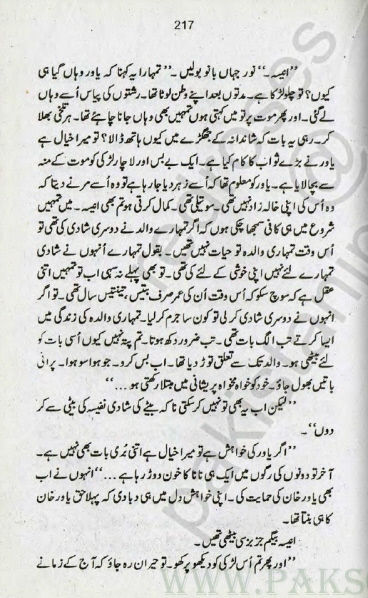 217
"انیسہ۔" نور جہاں بانو بولیں۔ "تمہارا یہ کہنا کہ یاور وہاں گیا ہی
کیوں؟ تو چلو لڑکا ہے۔ مدتوں بعد اپنے وطن لوٹا تھا۔ رشتوں کی پیاس اُسے وہاں
لے گئی۔ اور پھر موت پر تو میں کہتی ہوں تمہیں بھی وہاں جانا چاہئے تھا۔ ہر تلخی بھلا
کر۔ رہی یہ بات کہ شاندانہ کے جھگڑے میں کیوں ہاتھ ڈالا؟ تو میرا خیال ہے
یاور نے بڑے ثواب کا کام کیا ہے۔ ایک بے بس اور لاچار لڑکی کو موت کے منہ
سے بچا لایا ہے۔ یاور کو معلوم تھا کہ اُسے زہر دیا جا رہا ہے تو وہ اُسے مرنے دیتا کہ
وہ اُس کی اپنی خالہ زاد نہیں تھی، سوتیلی تھی۔ کمال کرتی ہو تم بھی انیسہ۔ میں تمہیں
شروع میں ہی کافی سمجھا چکی ہوں کہ اگر تمہارے والد نے دوسری شادی کی تھی تو
اُس وقت تمہاری والدہ تو حیات نہیں تھیں۔ بقول تمہارے اُنہوں نے شادی
تمہارے لئے نہیں اپنی خوشی کے لئے کی تھی۔ تو بھی پہلے نہ سہی اب تو تمہیں اتنی
عقل ہے کہ سوچ سکو کہ اُس وقت اُن کی عمر صرف بتیس تینتیس سال تھی۔ تو اگر
انہوں نے دوسری شادی کر لی تو کون سا جرم کر لیا۔ تمہاری والدہ کی زندگی میں
ایسا کرتے تب الگ بات تھی۔ تب ضرور دکھ ہوتا۔ تم پتہ نہیں کیوں اُسی بات کو
لئے بیٹھی ہو۔ والد تک سے تعلق توڑ دیا تھا۔ اب بس کرو۔ جو ہوا سو ہوا۔ پرانی
باتیں بھول جاؤ۔ خود کو خواہ مخواہ پریشانی میں مبتلا رکھتی ہو..."
"لیکن اب یہ بھی تو نہیں کر سکتی نا کہ بیٹے کی شادی نفیسہ کی بیٹی سے کر
دوں"۔
"اگر یاور کی خواہش ہے تو میرا خیال ہے اتنی بُری بات بھی نہیں ہے۔
آخر تو دونوں کی رگوں میں ایک ہی نانا کا خون دوڑ رہا ہے..." انہوں نے اب
بھی یاور خان کی حمایت کی۔ اپنی خواہش دل میں ہی دبا دی کہ پہلا حق یاور خان
کا ہی بنتا تھا۔
انیسہ بیگم جزبز سی بیٹھی تھیں۔
"اور پھر تم اُس لڑکی کو دیکھو پرکھو۔ تو حیران رہ جاؤ کہ آج کے زمانے